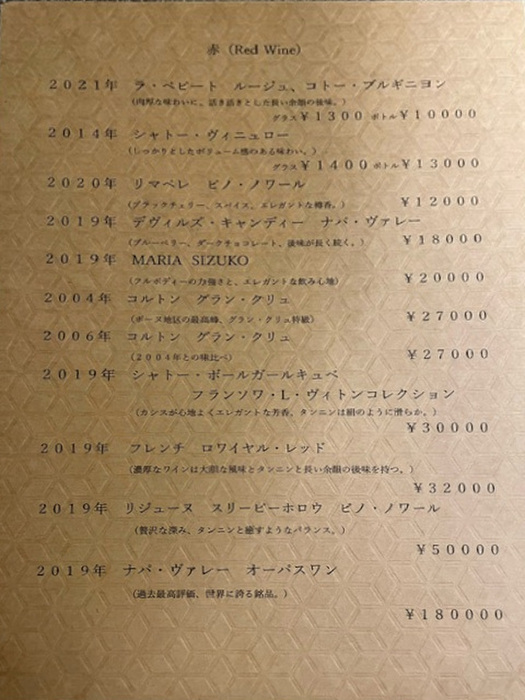 赤（Red Wine）
２０２１年 ラ・ペピート ルージュ、コトー・ブルギニヨン
（肉厚な味わいに、活き活きとした長い余韻の後味。）
グラス￥１３００ ボトル￥１００００
２０１４年 シャトー・ヴィニュロー
（しっかりとしたボリューム感のある味わい。）
グラス￥１４００ ボトル￥１３０００
２０２０年 リマペレ ピノ・ノワール
（ブラックチェリー、スパイス、エレガントな樽香。）
￥１２０００
２０１９年 デヴィルズ・キャンディー ナパ・ヴァレー
（ブルーベリー、ダークチョコレート、後味が長く続く。）
￥１８０００
２０１９年 MARIA SIZUKO
（フルボディーの力強さと、エレガントな飲み心地）
￥２００００
２００４年 コルトン グラン・クリュ
（ボーヌ地区の最高峰、グラン・クリュ特級）
￥２７０００
２００６年 コルトン グラン・クリュ
（２００４年との味比べ）
￥２７０００
２０１９年 シャトー・ボールガールキュベ
フランソワ・L・ヴィトンコレクション
（カシスが心地よくエレガントな芳香、タンニンは絹のように滑らか。）
￥３００００
２０１９年 フレンチ ロワイヤル・レッド
（濃厚なワインは大胆な風味とタンニンと長い余韻の後味を持つ。）
￥３２０００
２０１９年 リジューヌ スリーピーホロウ ピノ・ノワール
（贅沢な深み、タンニンと癒すようなバランス。）
￥５００００
２０１９年 ナパ・ヴァレー オーパスワン
（過去最高評価、世界に誇る銘品。）
￥１８００００